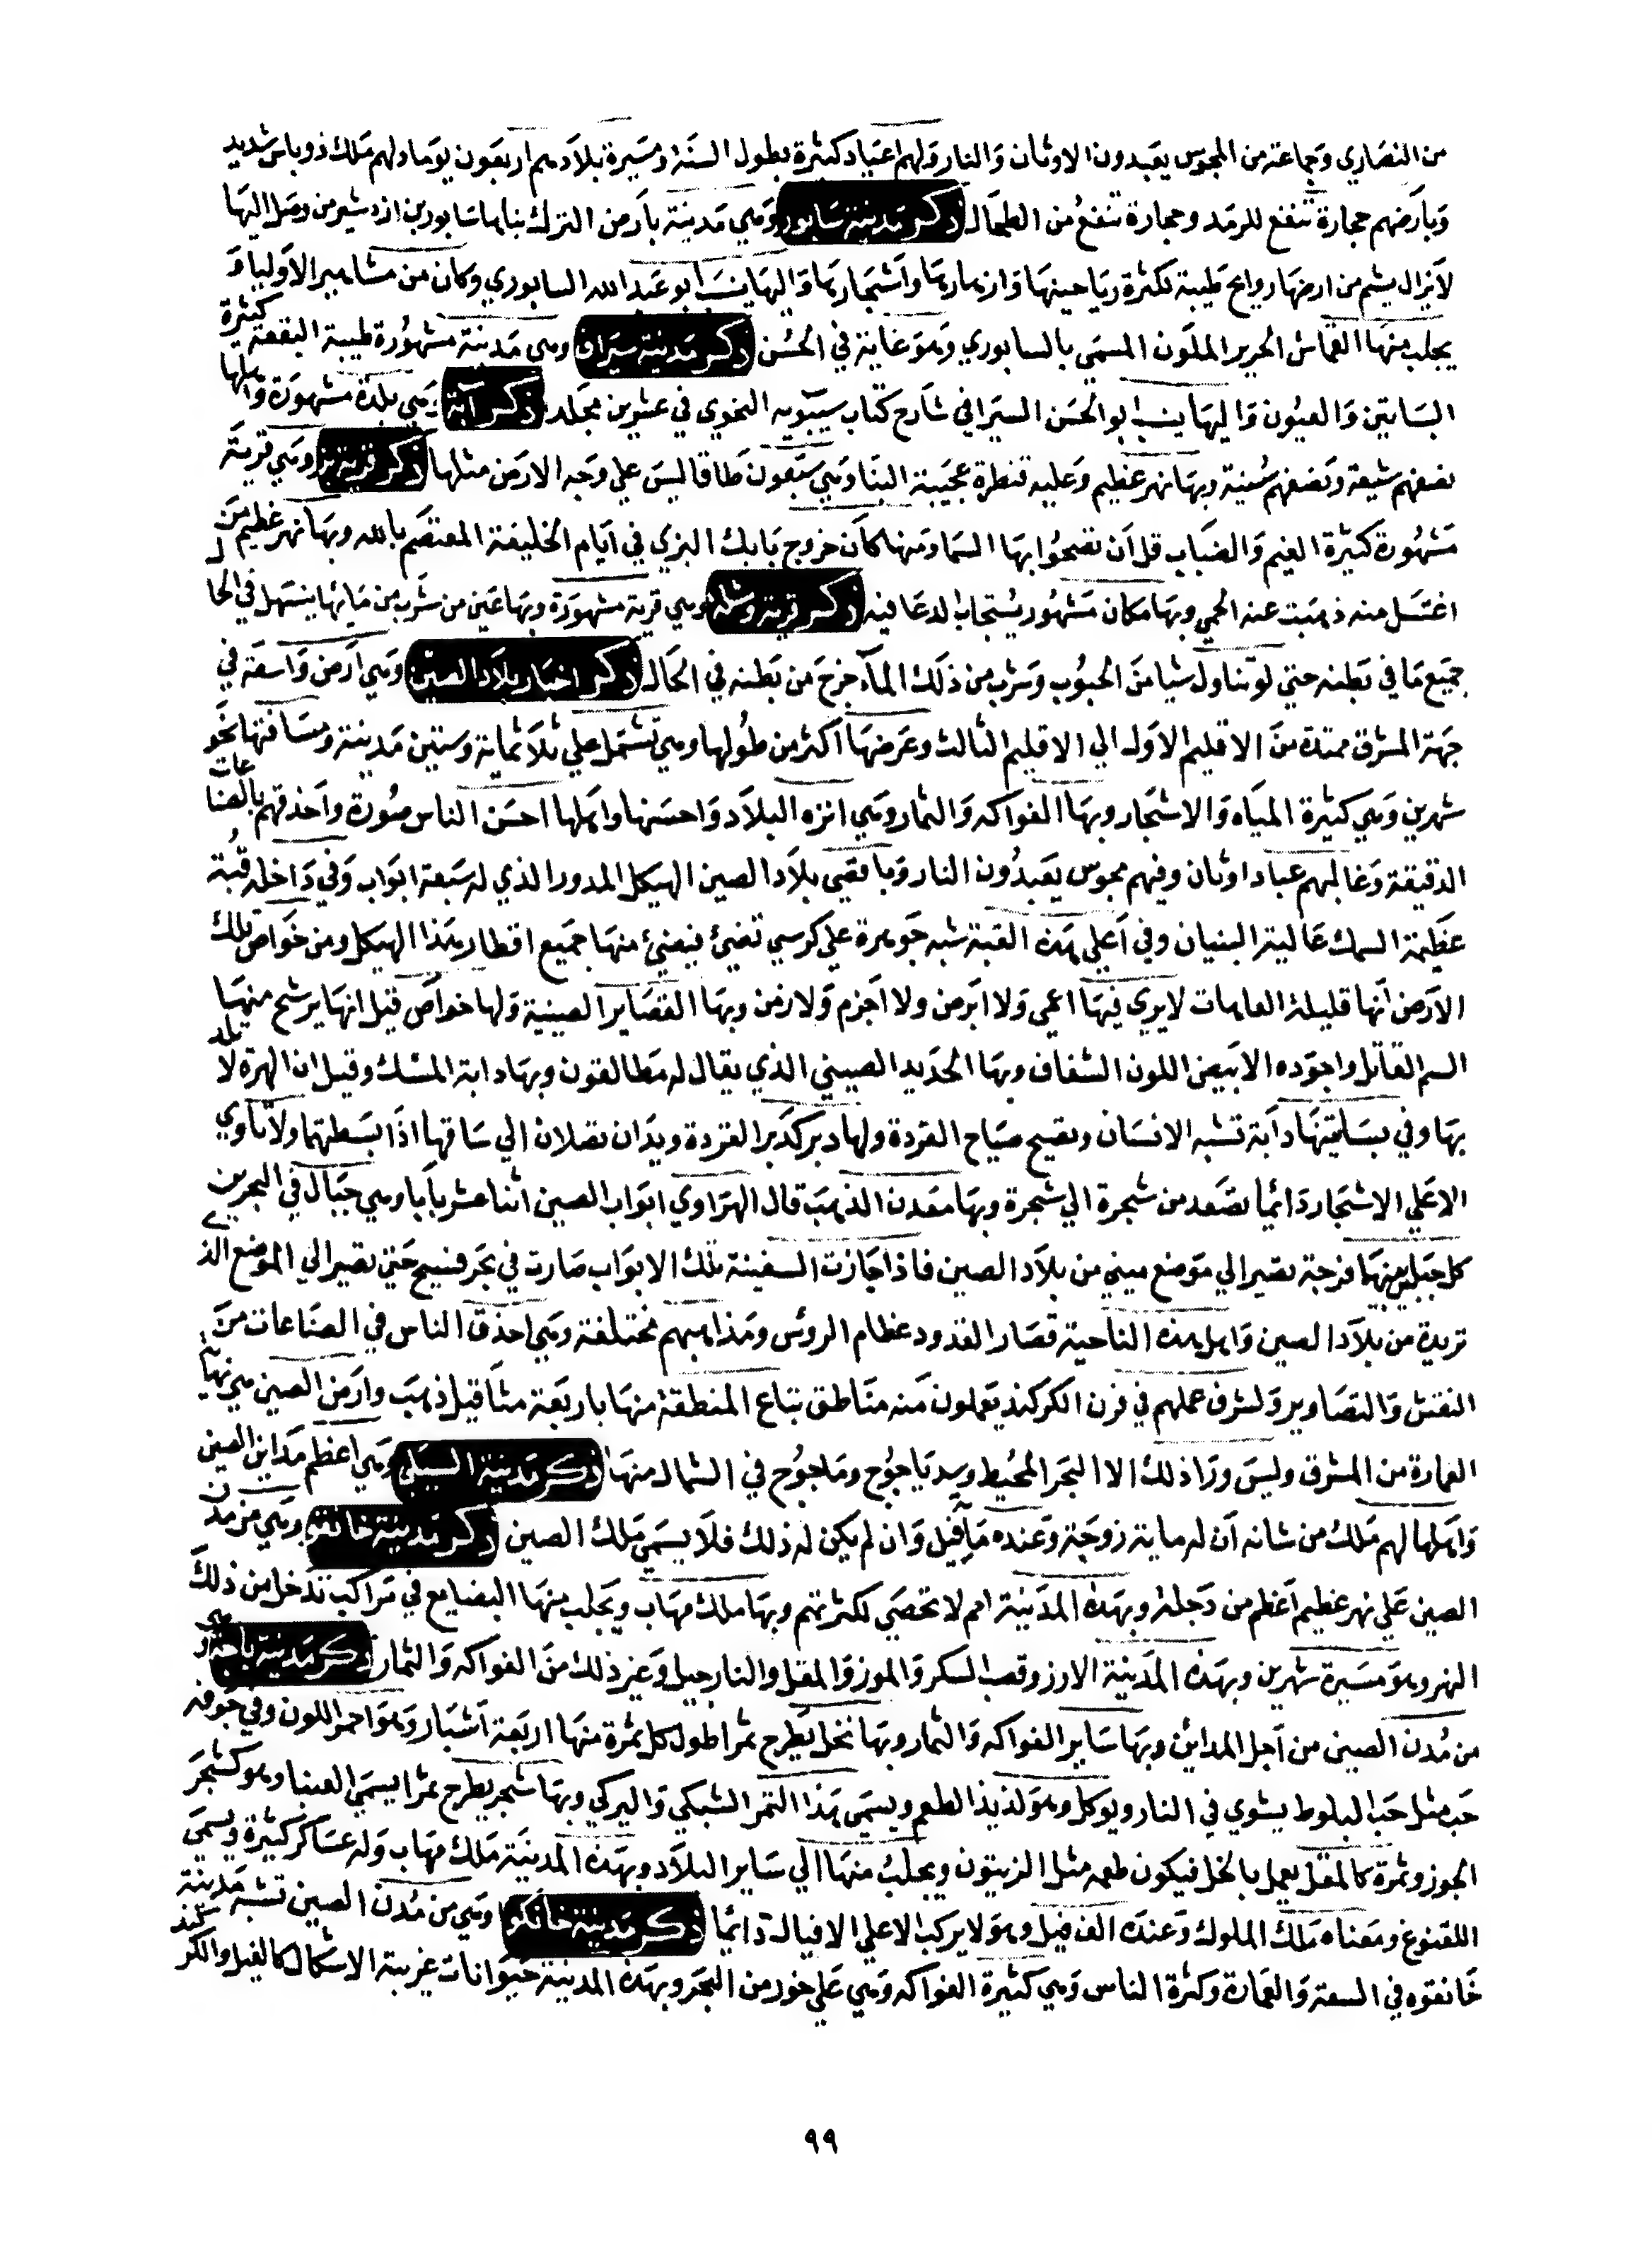 من النصاري وجماعة من المجوس يعبدون الاوثان والنار ولهم اعياد كثيرة بطول السنة ومسيرة بلادهم اربعون يوما ولهم ملك ذو باس شديد
وبارضهم حجارة تنفع للرمد وحجارة تنفع من الطحال ذكر مدينة سابور وهي مدينة بارض الترك بناها سابور بن ازدشير من وصل اليها
لا يزال يشم من ارضها روايح طيبة لكثرة رياحينها وازهارها واشجارها واليها ينسب ابو عبد الله السابوري وكان من مشاهير الاولياء و
يجلب منها القماش الحرير الملون المسمي بالسابوري وهو غاية في الحسن ذكر مدينة سيراف وهي مدينة مشهورة طيبة البقعة كثيرة
البساتين والعيون واليها ينسب ابو الحسن السيرافي شارح كتاب سيبويه النحوي في عشرين مجلد ذكر آبة وهي بلدة مشهورة واهلها
نصفهم شيعة ونصفهم سنية وبها نهر عظيم وعليه قنطرة عجيبة البنا وهي سبعون طاقا ليس علي وجه الارض مثلها ذكر قرية بز وهي قرية
مشهورة كثيرة الغيم والضباب قل ان تصحوا بها السما ومنها كان خروج بابك البزي في ايام الخليفة المعتصم بالله وبها نهر عظيم من
اغتسل منه ذهبت عنه الحمي وبها مكان مشهور يستجاب الدعا فيه ذكر قرية وشلة وهي قرية مشهورة وبها عين من شرب من مائها ينسهل في الحال
جميع ما في بطنه حتي لو تناول شيا من الحبوب وشرب من ذلك المآء خرج من بطنه في الحال ذكر اخبار بلاد الصين وهي ارض واسعة في
جهة المشرق ممتدة من الاقليم الاول الي الاقليم الثالث وعرضها اكثر من طولها وهي تشتمل علي ثلاثماية وستين مدينة ومسافتها نحو
شهرين وهي كثيرة المياه والاشجار وبها الفواكه والثمار وهي انزه البلاد واحسنها واهلها احسن الناس صورة واحذقهم بالصناعات
الدقيقة وغالبهم عباد اوثان وفيهم مجوس يعبدون النار وباقصي بلاد الصين الهيكل المدور الذي له سبعة ابواب وفي داخله قبة
عظيمة السمك عالية البنيان وفي اعلي هذه القبة شبه جوهرة علي كرسي تضئ فيضئ منها جميع اقطار هذا الهيكل ومن خواص تلك
الارض انها قليلة العاهات لا يري فيها اعمي ولا ابرص ولا اجزم ولا زمن وبها الغضاير الصينية ولها خواص قيل انها يرشح منها
السم القاتل واجوده الابيض اللون الشفاف وبها الحديد الصيني الذي يقال له مطالقون وبها دابة المسك وقيل ان الهرة لا تلد
بها وفي بساتينها دآبة تشبه الانسان وتصيح صياح القردة ولها دبر كدبر القردة ويدان تصلان الي ساقها اذا بسطتهما ولا تاوي
الا علي الاشجار دائما تصعد من شجرة الي شجرة وبها معدن الذهب قال الهراوي ابواب الصين اثنا عشر بابا وهي جبال في البحر بين
كل جبلين منها فرجة تصير الي موضع مبني من بلاد الصين فاذا جازت السفينة تلك الابواب صارت في بحر فسيح حتي تصير الي الموضع الذي
تريده من بلاد الصين واهل هذه الناحية قصار القدود عظام الروس ومذاهبهم مختلفة وهي احذق الناس في الصناعات من
النقش والتصاوير ولشرف عملهم في قرن الكركند يعملون منه مناطق تباع المنطقة منها باربعة مثاقيل ذهب وارض الصين هي نهاية
العمارة من المشرق وليس ورا ذلك الا البحر المحيط وسد ياجوج وماجوج في الشمال منها ذكر مدينة السيلي وهي اعظم مداين الصين
واهلها لهم ملك من شانه ان له ماية زوجة وعنده ماية فيل وان لم يكن له ذلك فلا يسمي ملك الصين ذكر مدينة خانقو وهي من مدن
الصين علي نهر عظيم اعظم من دجلة وبهذه المدينة امم لا تحصي لكثرتهم وبها ملك مهاب ويجلب منها البضايع في مراكب تدخل من ذلك
النهر وهو مسيرة شهرين وبهذه المدينة الارز وقصب السكر والموز والمقل والنارجيل وغير ذلك من الفواكه والثمار ذكر مدينة باجة وهي
من مدن الصين من اجل المدائن وبها ساير الفواكه والثمار وبها نخل يطرح تمرا طول كل تمرة منها اربعة اشبار وهو احمر اللون وفي جوفه
حب مثل حب البلوط يشوي في النار ويوكل وهو لذيذ الطعم ويسمي هذا التمر الشبكي واليركي وبها شجر يطرح ثمرا يسمي العنبا وهو كشجر
الجوز وثمرة كالمقل يعمل بالخل فيكون طعمه مثل الزيتون ويجلب منها الي ساير البلاد وبهذه المدينة ملك مهاب وله عساكر كثيرة ويسمي
اللقنوغ ومعناه ملك الملوك وعنده الف فيل وهو لا يركب الا علي الافيال دائما ذكر مدينة خانكو وهي من مدن الصين تشبه مدينة
خانقوه في السعة والعمارة وكثرة الناس وهي كثيرة الفواكه وهي علي خور من البحر وبهذه المدينة حيوانات غريبة الاشكال كالفيل والكركند
٩٩